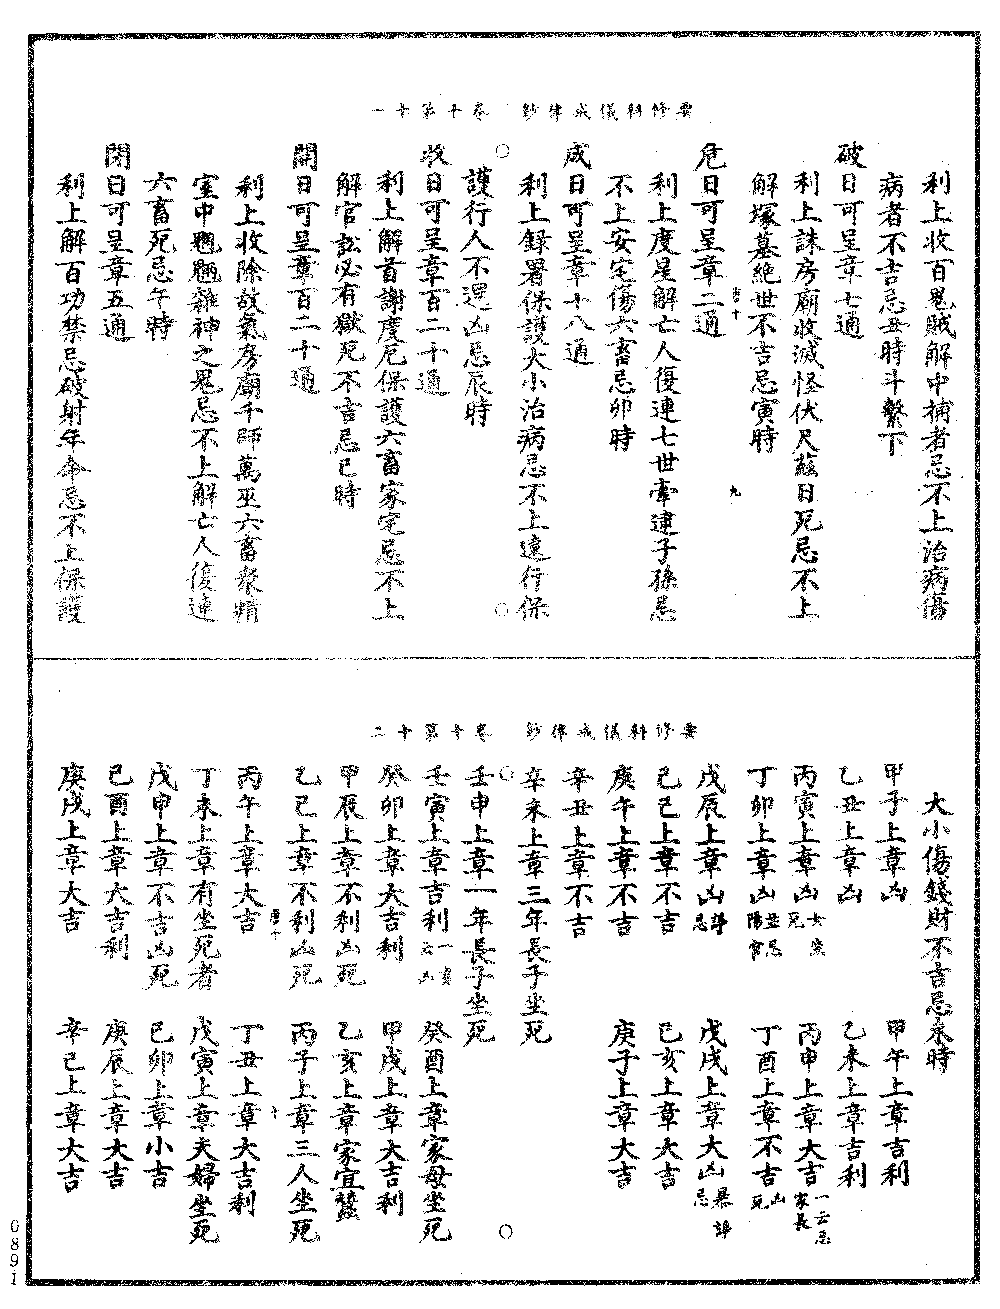 要修科儀戒律鈔 卷十第十一
利上收百鬼賊解中補者忌不上治病傷
病者不吉忌丑時斗繫下
破日可呈章七通
利上誅房廟收滅怪伏尺日死忌不上
解塚墓絕世不吉忌寅時
唐十 九
危日可呈章二通
利上度星解亡人復連七世牽逮子孫忌
不上安宅傷六畜忌卯時
成日可呈章十八通
利上錄署保護大小治病忌不上遠行保
護行人不還凶忌辰時
收日可呈章百二十通
利上解首謝度厄保護六畜家宅忌不上
解官訟必有獄死不吉忌巳時
開日可呈章百二十通
利上收除故氣房廟千師萬巫六畜衆精
室中魍魎雜神之鬼忌不上解亡人復連
六畜死忌午時
閉日可呈章五通
利上解百功禁忌破射年命忌不上保護
要修科儀戒律鈔 卷十第十二
大小傷錢財不吉忌未時
甲子上章凶 甲午上章吉利
乙丑上章凶 乙未上章吉利
丙寅上章凶女家死 丙申上章大吉一云忌家長
丁卯上章凶並忌陽官 丁酉上章不吉凶死
戊辰上章凶辟忌 戊戌上章大凶暴辟忌
己巳上章不吉 己亥上章大吉
庚午上章不吉 庚子上章大吉
辛丑上章不吉
辛未上章三年長子坐死
壬申上章一年長子坐死
壬寅上章吉利一家云凶 癸酉上章家母坐死
癸卯上章大吉利 甲戌上章大吉利
甲辰上章不利凶死 乙亥上章家宜蠶
乙巳上章不利凶死 丙子上章三人坐死
唐十 十
丙午上章大吉 丁丑上章大吉利
丁未上章有坐死者 戊寅上章夫婦坐死
戊申上章不吉凶死 己卯上章小吉
己酉上章大吉利 庚辰上章大吉
庚戌上章大吉 辛巳上章大吉
0891